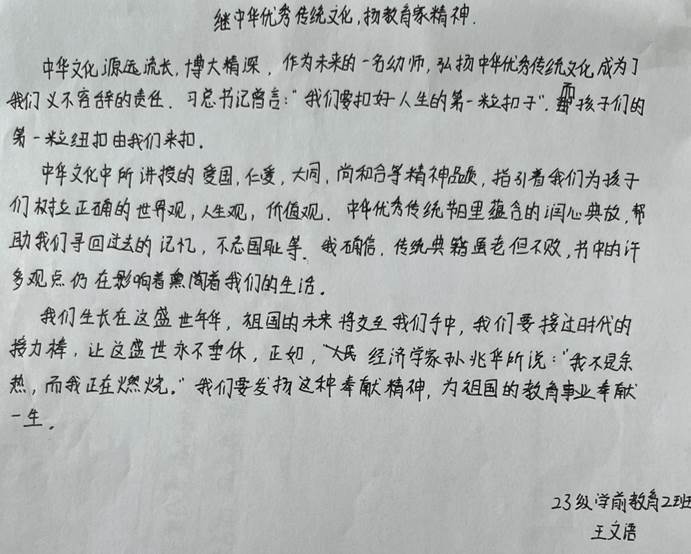 继中华优秀传统文化,扬教育家精神.
中华文化源远流长,博大精深,作为未来的一名幼师,弘扬中华优秀传统文化成为了
我们义不容辞的责任.习总书记曾言:"我们要扣好人生的第一粒扣子".而孩子们的
第一粒纽扣由我们来扣.
中华文化中所讲授的爱国,仁爱,大同,尚和合等精神品质,指引着我们为孩子
们树立正确的世界观,人生观,价值观.中华优秀传统节日里蕴含的润心典故,帮
助我们寻回过去的记忆,不忘国耻等.我确信,传统典籍虽老但不败,书中的许
多观点仍在影响着熏陶着我们的生活.
我们生长在这盛世年华,祖国的未来将交至我们手中,我们要接过时代的
接力棒,让这盛世永不垂休,正如,人民经济学家孙兆华所说:"我不是余
热,而我正在燃烧."我们要发扬这种奉献精神,为祖国的教育事业奉献
一生.
23级学前教育2班
王文语